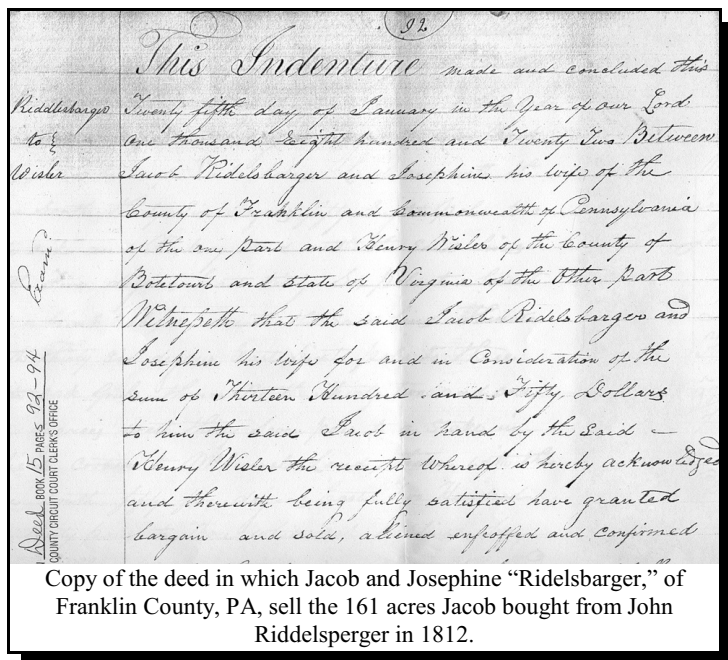 92
This Indenture made and concluded this
Riddlesbarger
to
Wisler
Twenty fifth day of January in the Year of our Lord
One thousand Eight hundred and Twenty Two Between
Jacob Ridelsbarger and Josephine his wife of the
County of Franklin and Commonwealth of Pennsylvania
of the one part and Henry Wisler of the County of
Botetourt and state of Virginia of the Other part
Witnesseth that the said Jacob Ridelsbarger and
Josephine his wife for and in Consideration of the
sum of Thirteen Hundred and Fifty Dollars
to him the said Jacob in hand by the said –
Henry Wisler the receipt whereof is hereby acknowledged
and therewith being fully satisfied have granted
bargain and sold, aliened enfeoffed and confirmed
Examd
Deed BOOK 15 PAGES 92-94
COUNTY CIRCUIT COURT CLERK'S OFFICE
Copy of the deed in which Jacob and Josephine “Ridelsbarger,” of
Franklin County, PA, sell the 161 acres Jacob bought from John
Riddelsperger in 1812.